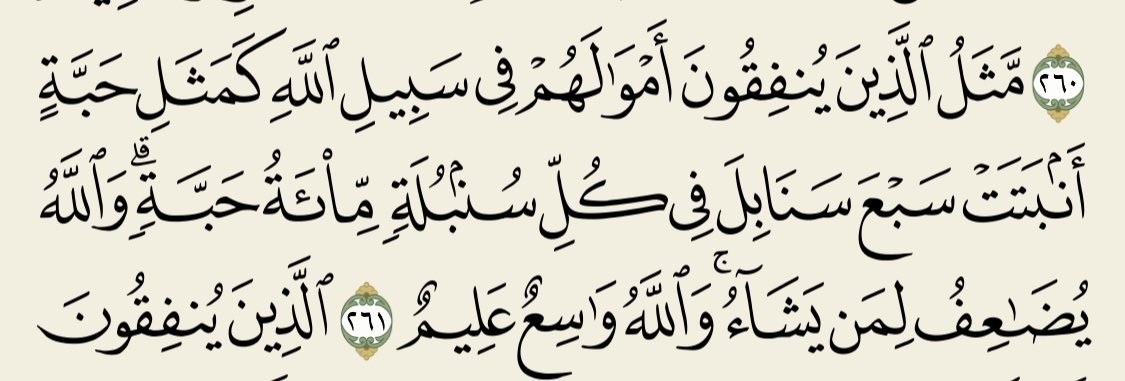 ٢٦٠ مَّثَلُ ٱلَّذِينَ يُنفِقُونَ أَمۡوَٰلَهُمۡ فِي سَبِيلِ ٱللَّهِ كَمَثَلِ حَبَّةٍ
أَنۢبَتَتۡ سَبۡعَ سَنَابِلَ فِي كُلِّ سُنۢبُلَةٖ مِّاْئَةُ حَبَّةٖۗ وَٱللَّهُ
يُضَٰعِفُ لِمَن يَشَآءُۚ وَٱللَّهُ وَٰسِعٌ عَلِيمٌ ٢٦١ ٱلَّذِينَ يُنفِقُونَ